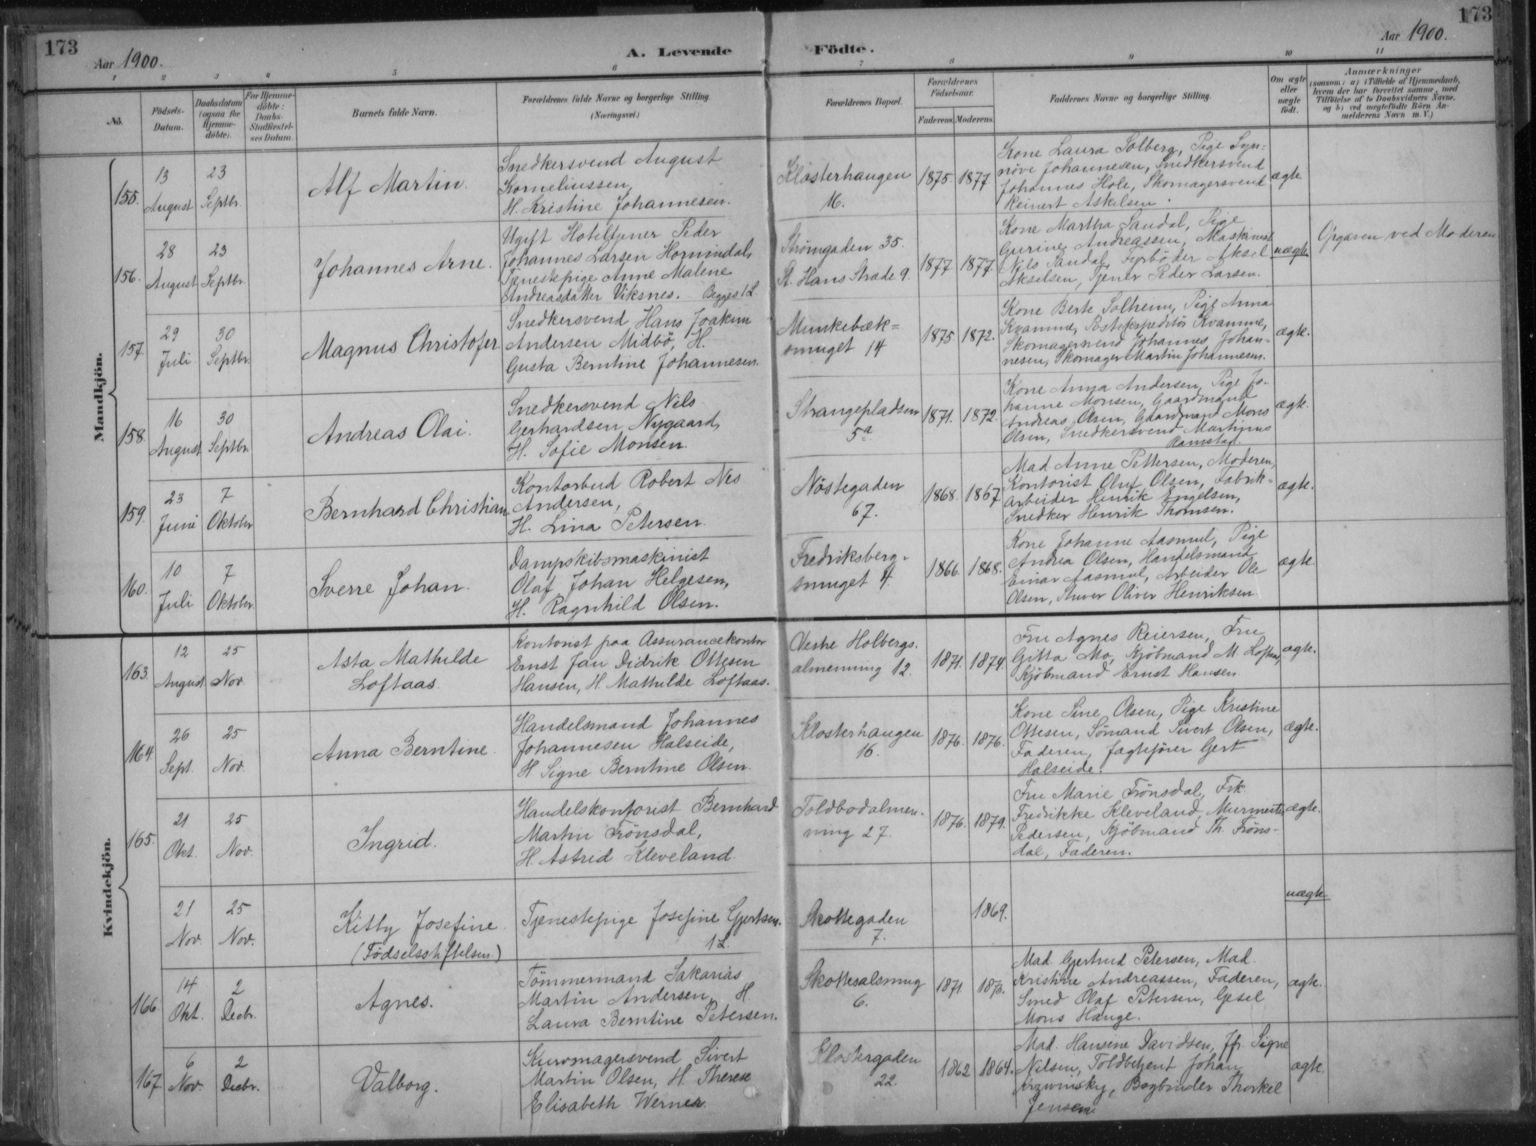 173
Aar 1900.
A. Levende
Födte.
Aar 1900.
173
1 2 3 4 5 6 7 8 9 10 11
No.
Födsels-
Datum.
Daabsdatum
(ogsaa for
Hjemme-
döbte).
For Hjemme-
döbte:
Daabs-
Stadfæstel-
ses Datum.
Barnets fulde Navn.
Forældrenes fulde Navne og borgerlige Stilling.
(Næringsvei)
Forældrenes Bopæl.
Forældrenes
Födselsaar.
Faderens. Moderens.
Faddernes Navne og borgerlige Stilling.
Om ægte
eller
uægte
födt.
Anmærkninger
(saasom: a) i Tilfælde af Hjemmedaab,
hvem der har forrettet samme, med
Tilföielse af to Daabsvidners Navne,
og b) ved uægtefödte Börn An-
melderens Navn m. V.)
Mandkjön.
155.
13
August
23
Septbr.
Alf Martin.
Snedkersvend August
Korneliussen,
H. Kristine Johannesen.
Klosterhaugen
16.
1875 1877
Kone Laura Solberg, Pige Syn-
növe Johannesen, Snedkersvend
Johannes Hole, Skomagersvend
Reinert Askelsen.
ægte
156.
28
August
23
Septbr.
Johannes Arne.
Ugift Hoteltjener Peder
Johannes Larsen Hornindal,
Tjenestepige Anne Malene
Andreasdatter Viksnes. Begges 1 L.
Strömgaden 35.
St. Hans Strade 9.
1877 1877.
Kone Martha Sandal, Pige
Gurine Andreassen, Maskinist
Nils Sandal, Fyrböder Aksel
Akselsen, Tjener Peder Larsen.
uægte
Opgaven ved Moderen
157.
29
Juli
30
Septbr.
Magnus Christofer
Snedkersvend Hans Joakim
Andersen Midbö, H.
Gusta Berntine Johannesen.
Munkebæk=
smuget 14
1875 1872.
Kone Berte Solheim, Pige Anna
Kvamme, Postekspeditör Kvamme,
Skomagersvend Johannes Johan-
nesen, Skomager Martin Johannesen.
ægte.
158.
16
August
30
Septbr.
Andreas Olai.
Snedkersvend Nils
Gerhardsen Nygaard,
H. Sofie Monsen.
Strangepladsen
5a.
1871. 1872.
Kone Anna Andersen, Pige Jo-
hanne Monsen, Gaardmand
Andreas Olsen, Gaardmand Mons
Olsen, Snedkersvend Martinus
Ramstad.
ægte.
159.
23
Juni
7
Oktober
Bernhard Christian
Kontorbud Robert Nes
Andersen,
H. Lina Petersen.
Nöstegaden
67.
1868. 1867.
Mad Anne Pettersen, Moderen,
Kontorist Oluf Olsen, Fabrik-
arbeider Henrik Engelsen,
Snedker Henrik Thomsen.
ægte.
160.
10
Juli
7
Oktober
Sverre Johan.
Dampskibsmaskinist
Olaf Johan Helgesen,
H. Ragnhild Olsen.
Fredriksberg-
smuget 4.
1866. 1868.
Kone Johanne Aasmul, Pige
Andrea Olsen, Handelsmand
Einar Aasmul, Arbeider Ole
Olsen, Stuver Oliver Henriksen
ægte.
Kvindekjön.
163.
12
August
25
Nov.
Asta Mathilde
Loftaas.
Kontorist paa Assurancekontor
Ernst Jan Didrik Ottesen
Hansen, H. Mathilde Loftaas.
Vestre Holbergs.
almenning 12.
1871. 1874.
Fru Agnes Reiersen, Fru
Gitta Mo, Kjöbmand M. Loftaas,
Kjöbmand Ernst Hansen.
ægte.
164.
26
Sept.
25
Nov.
Anna Berntine.
Handelsmand Johannes
Johannesen Halseide,
H. Signe Berntine Olsen.
Klosterhaugen
16.
1876. 1876.
Kone Sine Olsen, Pige Kristine
Ottesen, Sömand Sivert Olsen,
Faderen, Jagtefører Gert
Halseide.
ægte.
165.
21
Okt.
25
Nov.
Ingrid.
Handelskontorist Bernhard
Martin Frönsdal,
H. Astrid Kleveland.
Toldbodalmen-
ning 27.
1876. 1879.
Fru Marie Frönsdal, Frk.
Fredrikke Kleveland, Murmester
Pedersen, Kjöbmand Th. Fröns-
dal, Faderen.
ægte.
21
Nov.
25
Nov.
Kitty Josefine
(Födselsstiftelsen)
Tjenestepige Josefine Gjertsen.
1 L.
Skottegaden
7.
1869.
uægte
166.
14
Okt.
2
Decbr.
Agnes.
Tömmermand Sakarias
Martin Andersen, H.
Laura Berntine Petersen.
Skottesalmng
6.
1871.
Mad. Gjertrud Petersen, Mad.
Kristine Andreassen, Faderen,
Smed Olaf Petersen, Gjesel
Mons Hauge.
ægte.
167.
6
Nov.
2
Decbr.
Valborg.
Kurvmagersvend Sivert
Martin Olsen, H. Therese
Elisabeth Werner.
Klostergaden
22.
1862 1864.
Mad. Hansene Davidsen, Fr. Signe
Nilsen, Toldbetjent Johan
Bogbinder Thorkel
Jensen.
ægte.